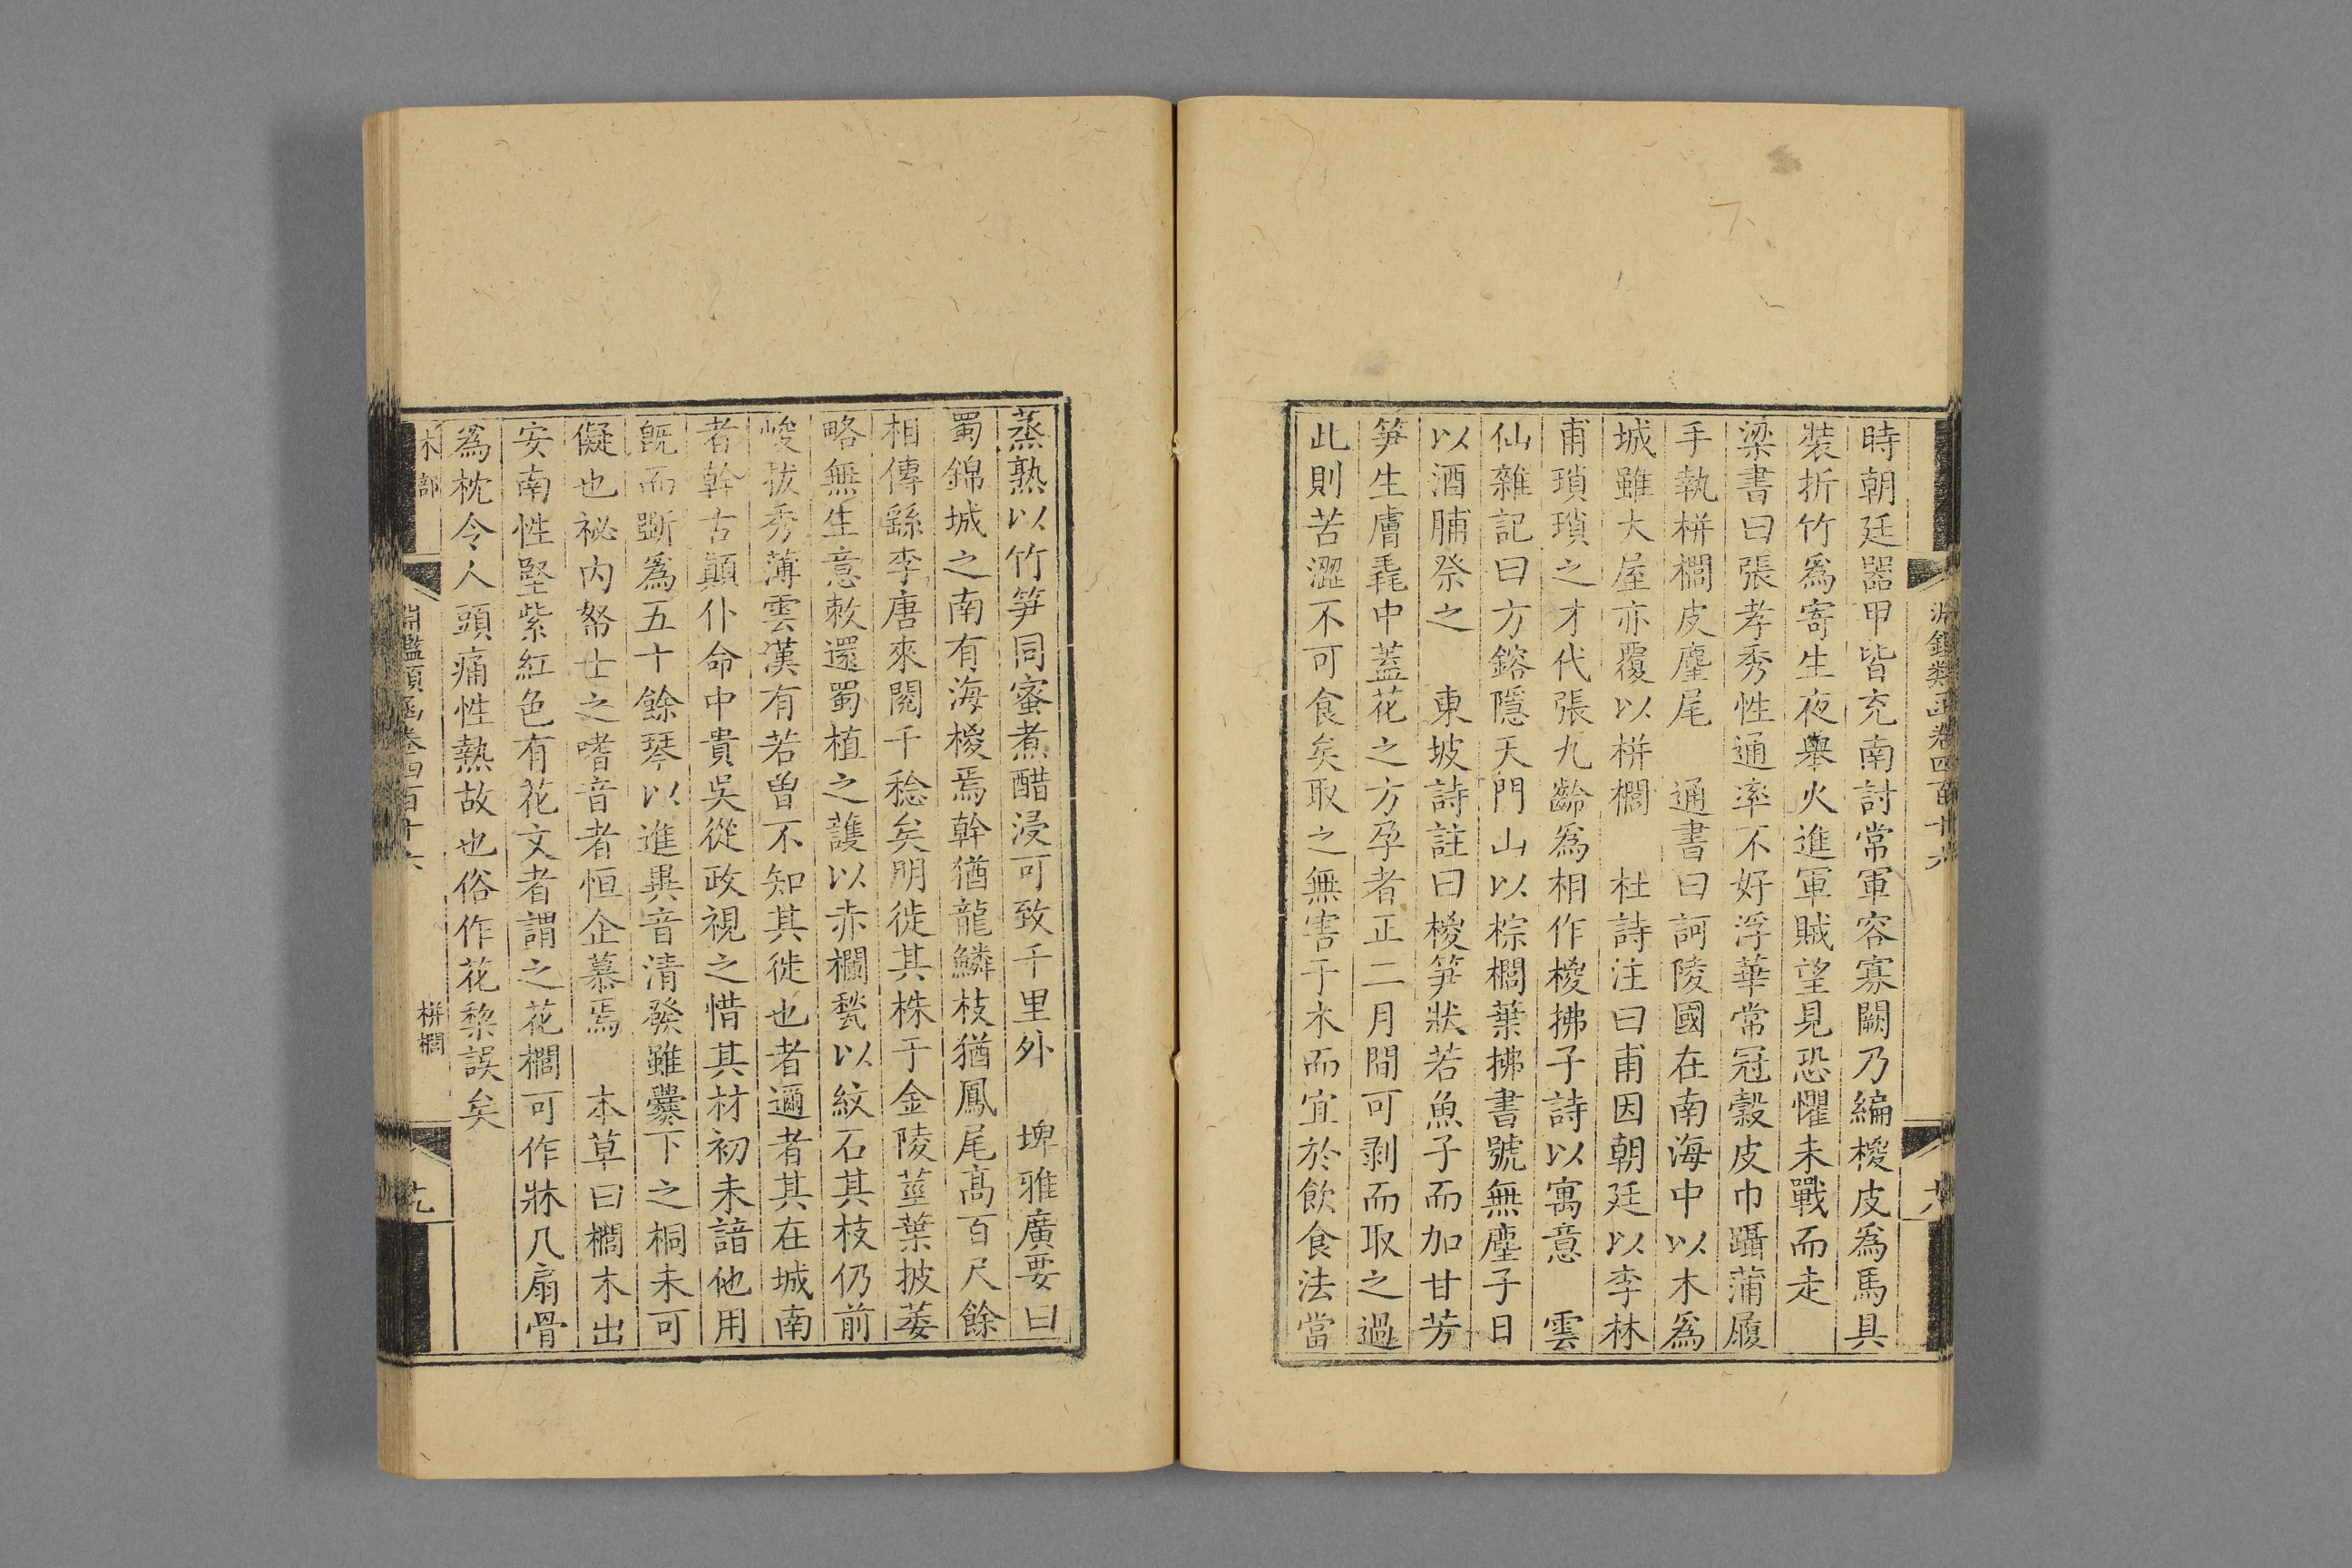 時朝廷器甲皆充南討常軍容寡闕乃編椶皮爲馬具
裝折竹爲寄生夜舉火進軍賊望見恐懼未戰而走
梁書曰張孝秀性通率不好浮華常冠穀皮巾躡蒲履
手執栟櫚皮麈尾　通書曰訶陵國在南海中以木爲
城雖大屋亦覆以栟櫚　杜詩注曰甫因朝廷以李林
甫瑣瑣之才代張九齡爲相作椶拂子詩以寓意　雲
仙雜記曰方鎔隱天門山以棕櫚葉拂書號無塵子日
以酒脯祭之　東坡詩註曰椶笋狀若魚子而加甘芳
笋生膚毳中蓋花之方孕者正二月間可剥而取之過
此則苦澀不可食矣取之無害于木而宜於飲食法當
蒸熟以竹笋同蜜煮醋浸可致千里外　埤雅廣要曰
蜀錦城之南有海椶焉幹猶龍鱗枝猶鳳尾高百尺餘
相傳繇李唐來閱千稔矣明徙其株于金陵莖葉披萎
略無生意敕還蜀植之護以赤欄甃以紋石其枝仍前
峻拔秀薄雲漢有若曾不知其徙也者邇者其在城南
者幹古顛仆命中貴吳從政視之惜其材初未諳他用
既而斲爲五十餘琴以進異音清發雖爨下之桐未可
儗也祕内帑士之嗜音者恒企慕焉　本草曰櫚木出
安南性堅紫紅色有花文者謂之花櫚可作牀几扇骨
爲枕令人頭痛性熱故也俗作花梨誤矣
淵鑑類函卷四百十六
木部
淵鑑類函卷四百十六
栟櫚